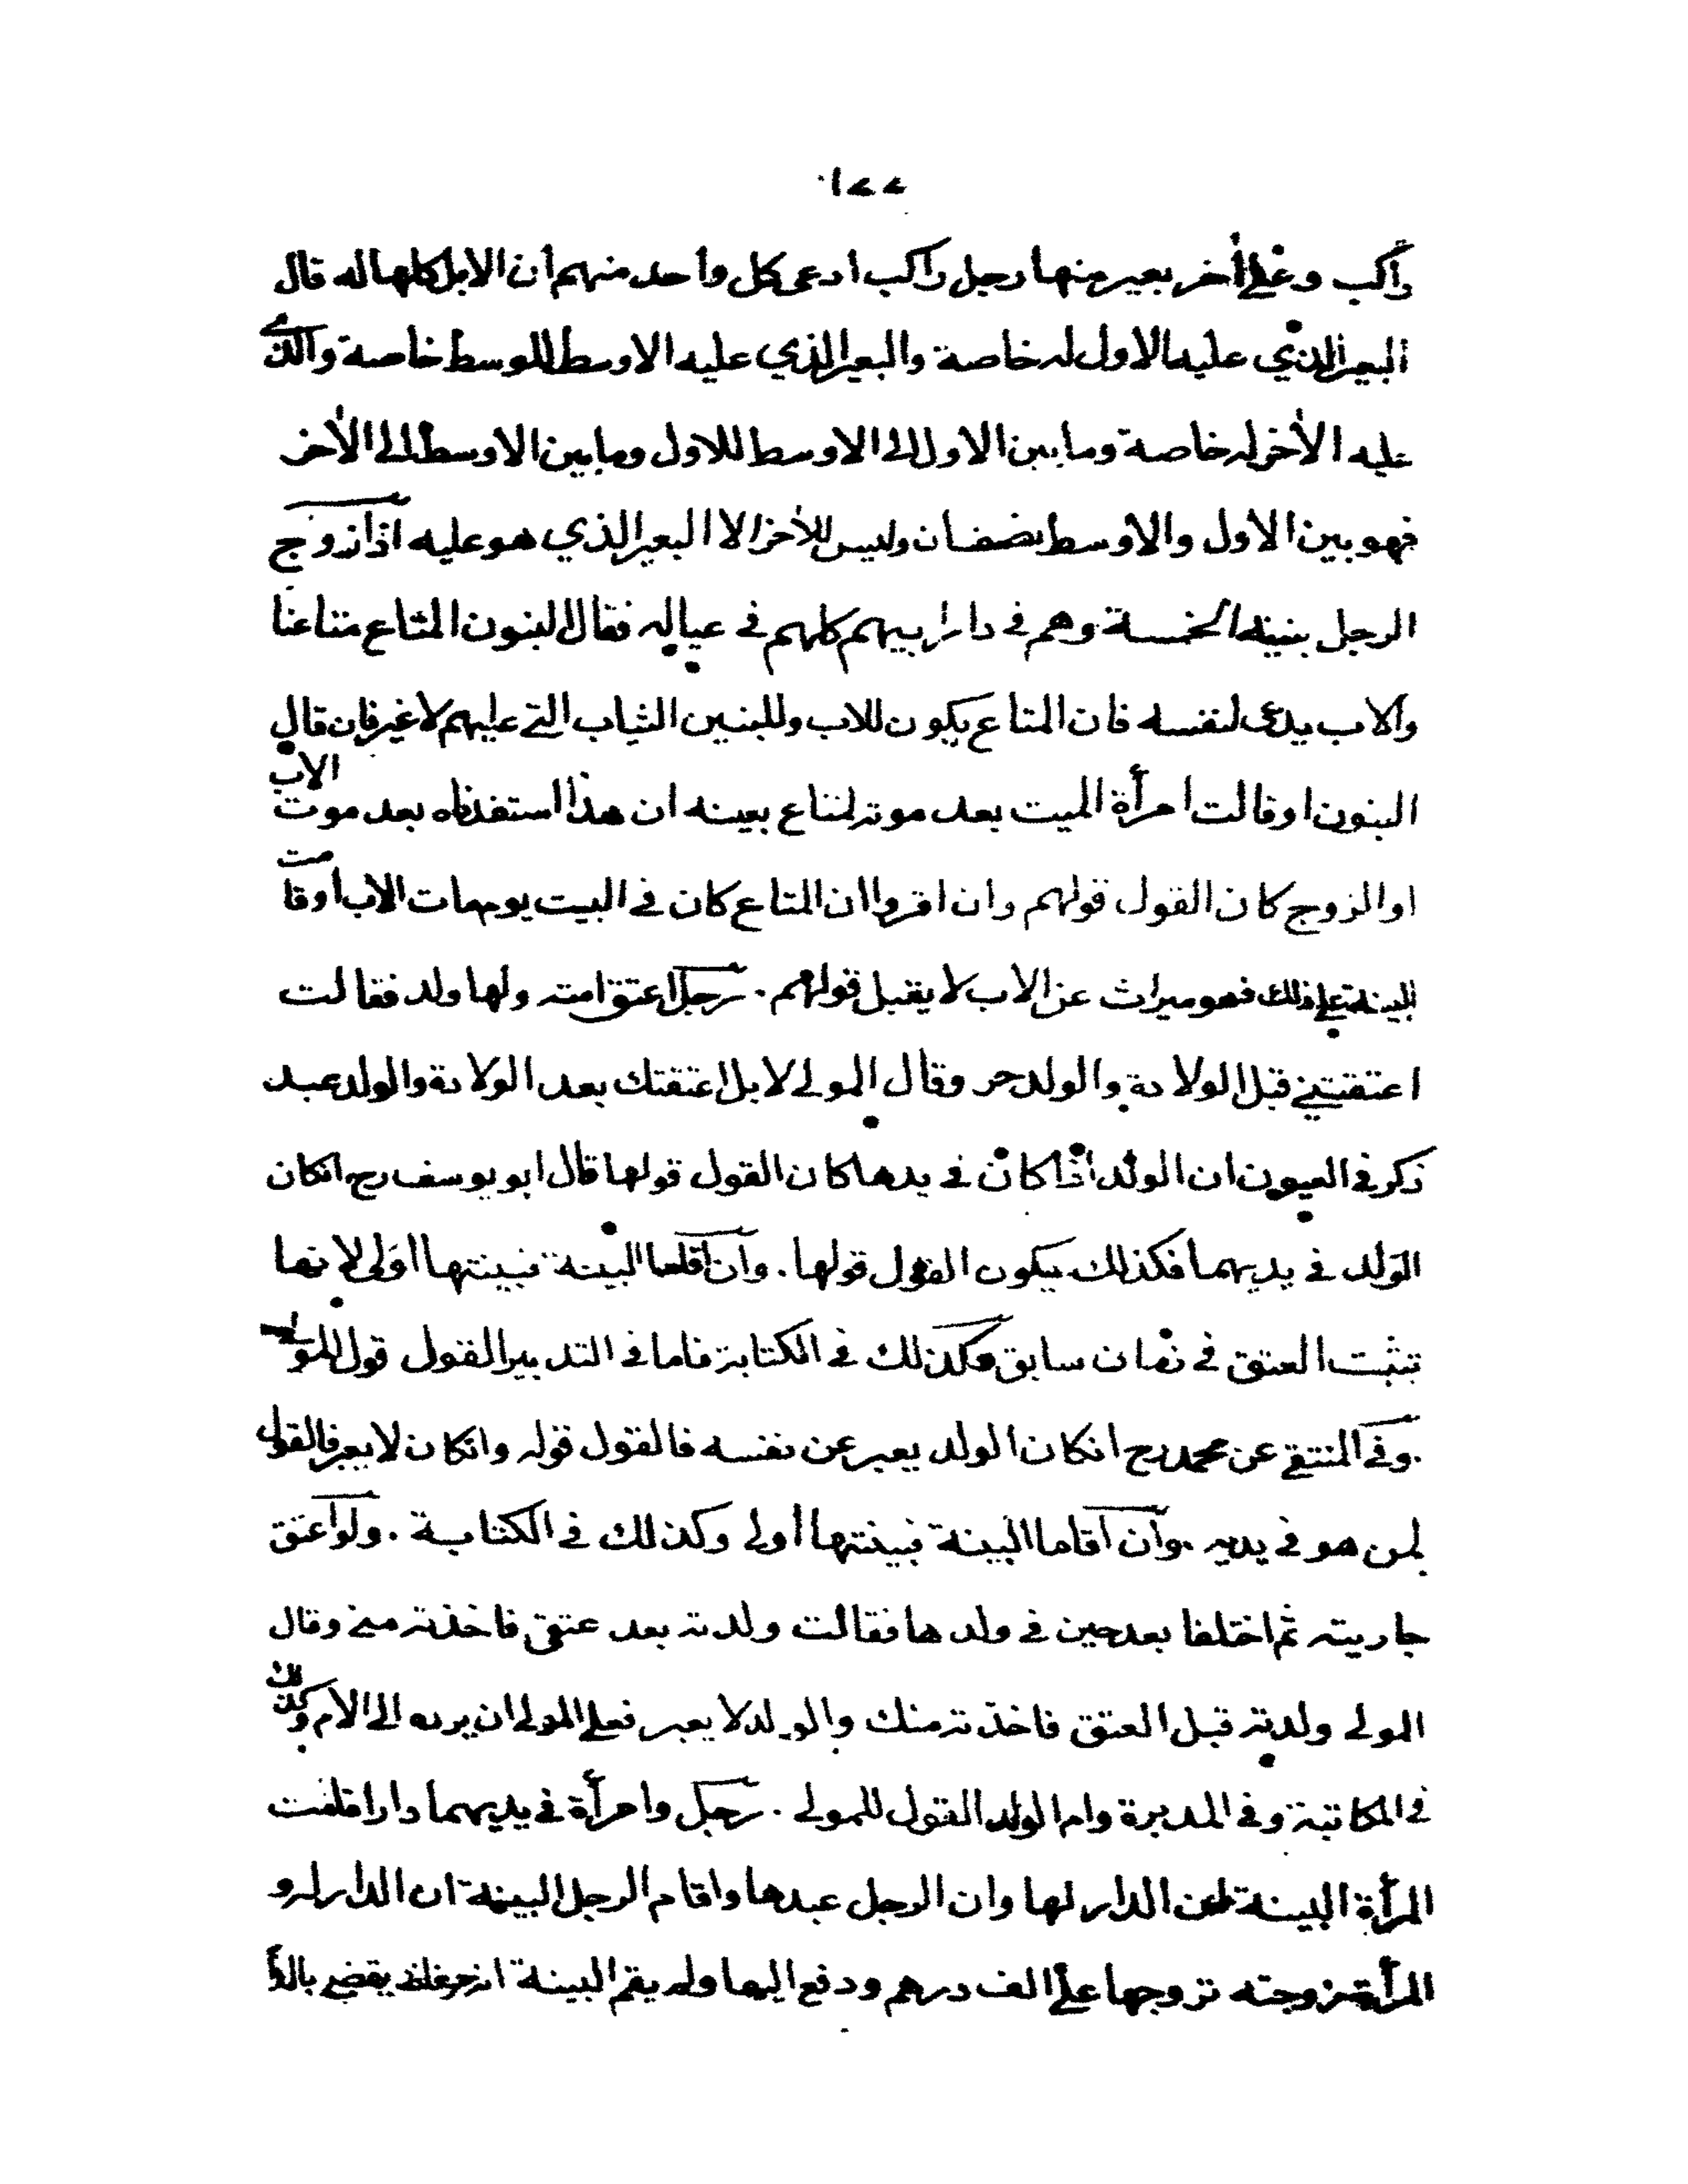 راكب وعلى أخر بعير منها رجل راكب ادعى كل واحد منهم ان الابل كلها له قال
البعير الذي عليه الاول له خاصة والبعير الذي عليه الاوسط للوسط خاصة والذي
عليه الأخر له خاصة وما بين الاول الى الاوسط للاول وما بين الاوسط الى الأخر
فهو بين الاول والاوسط نصفان وليس للأخر الا البعير الذي هو عليه اذا زوج
الرجل بنيه الخمسة وهم في دار ابيهم كلهم في عياله فقال البنون المتاع متاعنا
والاب يدعى لنفسه فان المتاع يكون للاب وللبنين الثياب التي عليهم لا غير فان قال
البنون او قالت امرأة الميت بعد موته لمتاع بعينه ان هذا استفدناه بعد موت الاب
او الزوج كان القول قولهم وان اقروا ان المتاع كان في البيت يوم مات الاب أو قامت
البينة على ذلك فهو ميراث عن الاب لا يقبل قولهم . رجل اعتق امته ولها ولد فقالت
اعتقتني قبل الولادة والولد حر وقال المولى لا بل اعتقتك بعد الولادة والولد عبد
ذكر في العيون ان الولد اذا كان في يدها كان القول قولها قال ابو يوسف رح انكان
الولد في يديهما فكذلك يكون القول قولها . وان اقاما البينة فبينتها اولى لانها
تثبت العتق في زمان سابق وكذلك في الكتابة فاما في التدبير القول قول المولى
وفي المنتقى عن محمد رح انكان الولد يعبر عن نفسه فالقول قوله وانكان لا يعبر فالقول
لمن هو في يديه . وان اقاما البينة فبينتها أولى وكذلك في الكتابة . ولو اعتق
جاريته ثم اختلفا بعد حين في ولدها فقالت ولدته بعد عتقى فاخذته منى وقال
المولى ولدته قبل العتق فاخذته منك والولد لا يعبر فعلى المولى ان يرده الى الام وكذلك
في المكاتبة وفي المدبرة وام الولد القول للمولى . رجل وامرأة في يديهما دار اقامت
المرأة البينة ان الدار لها وان الرجل عبدها واقام الرجل البينة ان الدار له و
المرأة زوجته تزوجها على الف درهم ودفع اليها ولم يقم البينة انه حر فانه يقضي بالدا